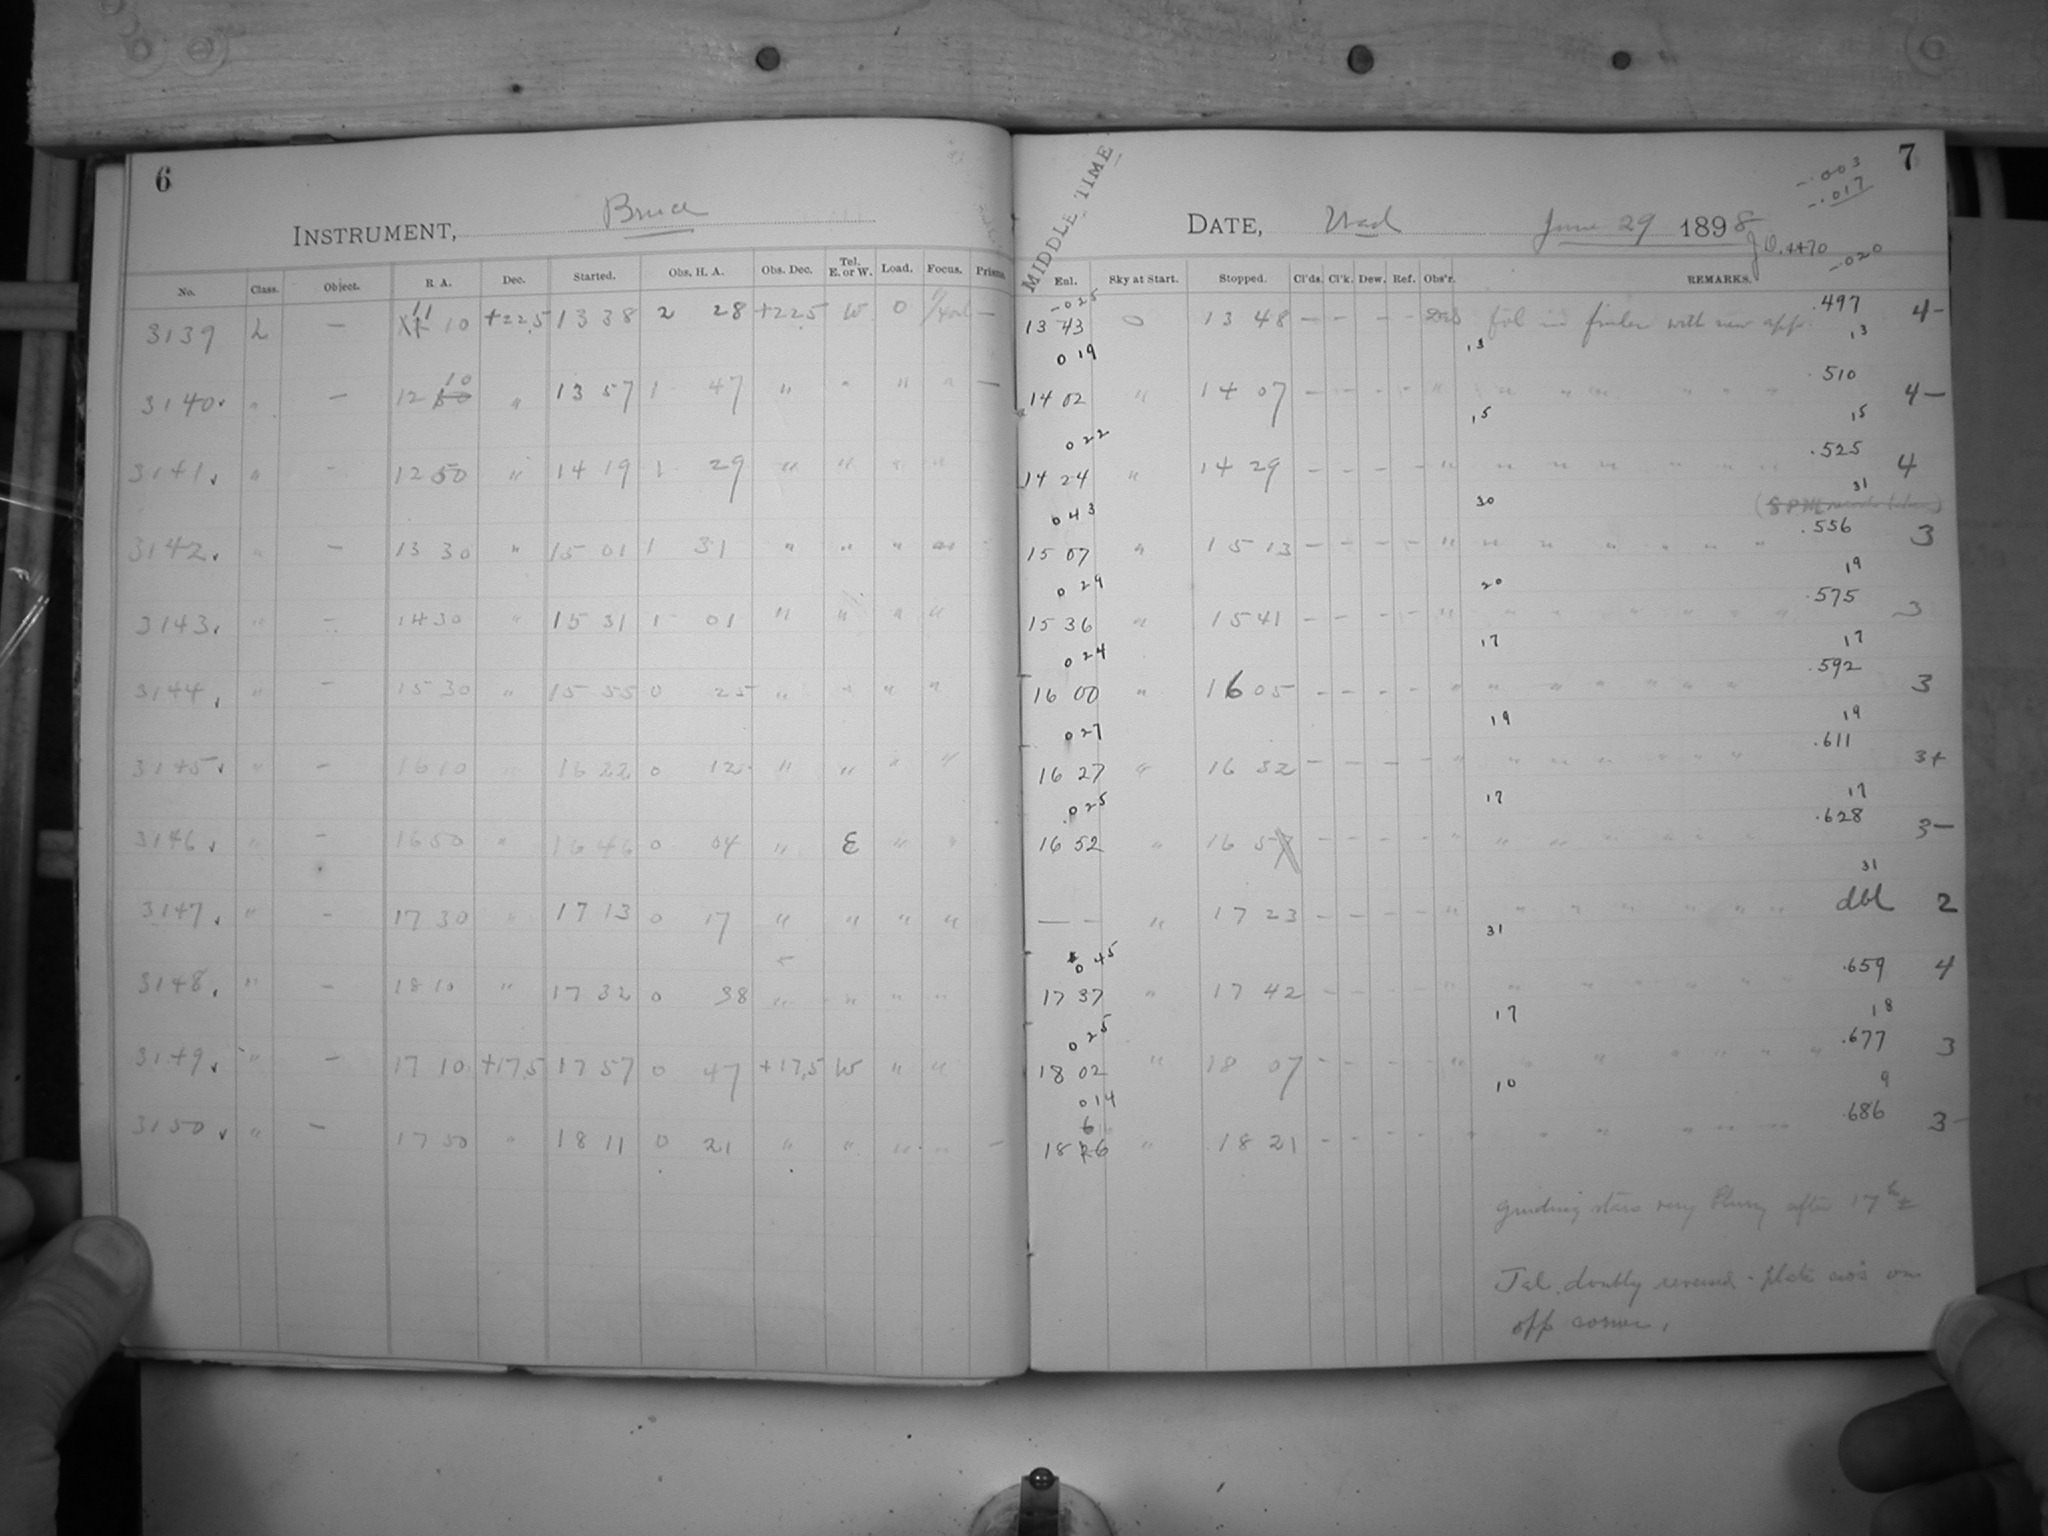 6
INSTRUMENT, Bruce
No. Class. Object. R A. Dec. Started. Obs. H. A. Obs. Dec. Tel. E. or W. Load. Focus. Prisms.
3139 L — 11 10 +22.5 13 38 2 28 +22.5 W 0 —
3140 " — 12 10 " 13 57 1 47 " " " " —
3141 " - 12 50 " 14 19 1 29 " " " "
3142 " — 13 30 " 15 01 1 31 " " " "
3143 " - 14 30 " 15 31 1 01 " " " "
3144 " - 15 30 " 15 55 0 25 " " " "
3145 " - 16 10 " 16 22 0 12 " " " "
3146 " - 16 50 " 16 46 0 04 " E " "
3147 " - 17 30 " 17 13 0 17 " " " "
3148 " - 18 10 " 17 32 0 38 " " " "
3149 " - 17 10 +17.5 17 57 0 47 +17.5 W " "
3150 " — 17 50 " 18 11 0 21 " " " " —
7
-.003
-.017
-.020
MIDDLE TIME
DATE, Wed June 29 1898
J.D. 4470
Enl. Sky at Start. Stopped. Cl'ds. Cl'k. Dew. Ref. Obs'r. REMARKS.
-025 .497
13 43 0 13 48 — — - - fol in finder with new app. 4-
019 13 13
.510
14 02 " 14 07 - - - - " " " " " " " 4-
022 15 15
.525
14 24 " 14 29 - - - - " " " " " " " 4
043 30 31
.556
15 07 " 15 13 - - - - " " " " " " " 3
029 20 19
.575
15 36 " 15 41 - - - - " " " " " " " 3
024 17 17
.592
16 00 " 16 05 - - - - " " " " " " " 3
027 19 19
.611
16 27 " 16 32 - - - - " " " " " " " 3+
.025 17 17
.628
16 52 " 16 57 - - - - " " " " " " " 3-
31
— - " 17 23 - - - - " " " " " " " dbl 2
31
045 .659
17 37 " 17 42 - - - - " " " " " " " 4
025 17 18
.677
18 02 " 18 07 - - - - " " " " " " " 3
014 10 9
.686
18 16 " 18 21 - - - - " " " " " " " 3-
guiding stars very blurry after 17h ±
Tel. doubly reversed - plate no's on
opp corner.